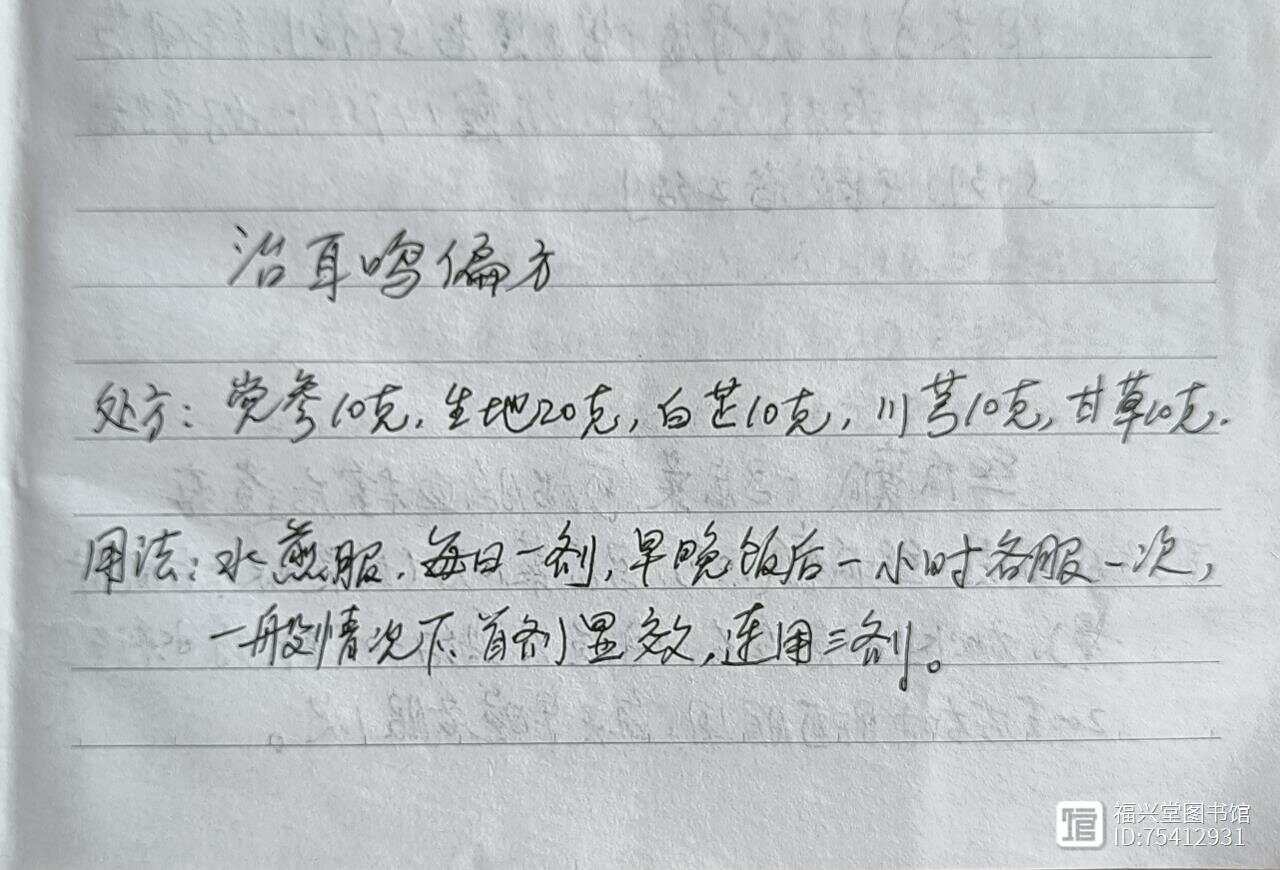 治耳鸣偏方
处方：党参10克，生地20克，白芷10克，川芎10克，甘草10克.
用法：水煎服，每日一剂，早晚饭后一小时各服一次，
一般情况下、首剂显效，连用三剂。
福兴堂图书馆
ID:75412931